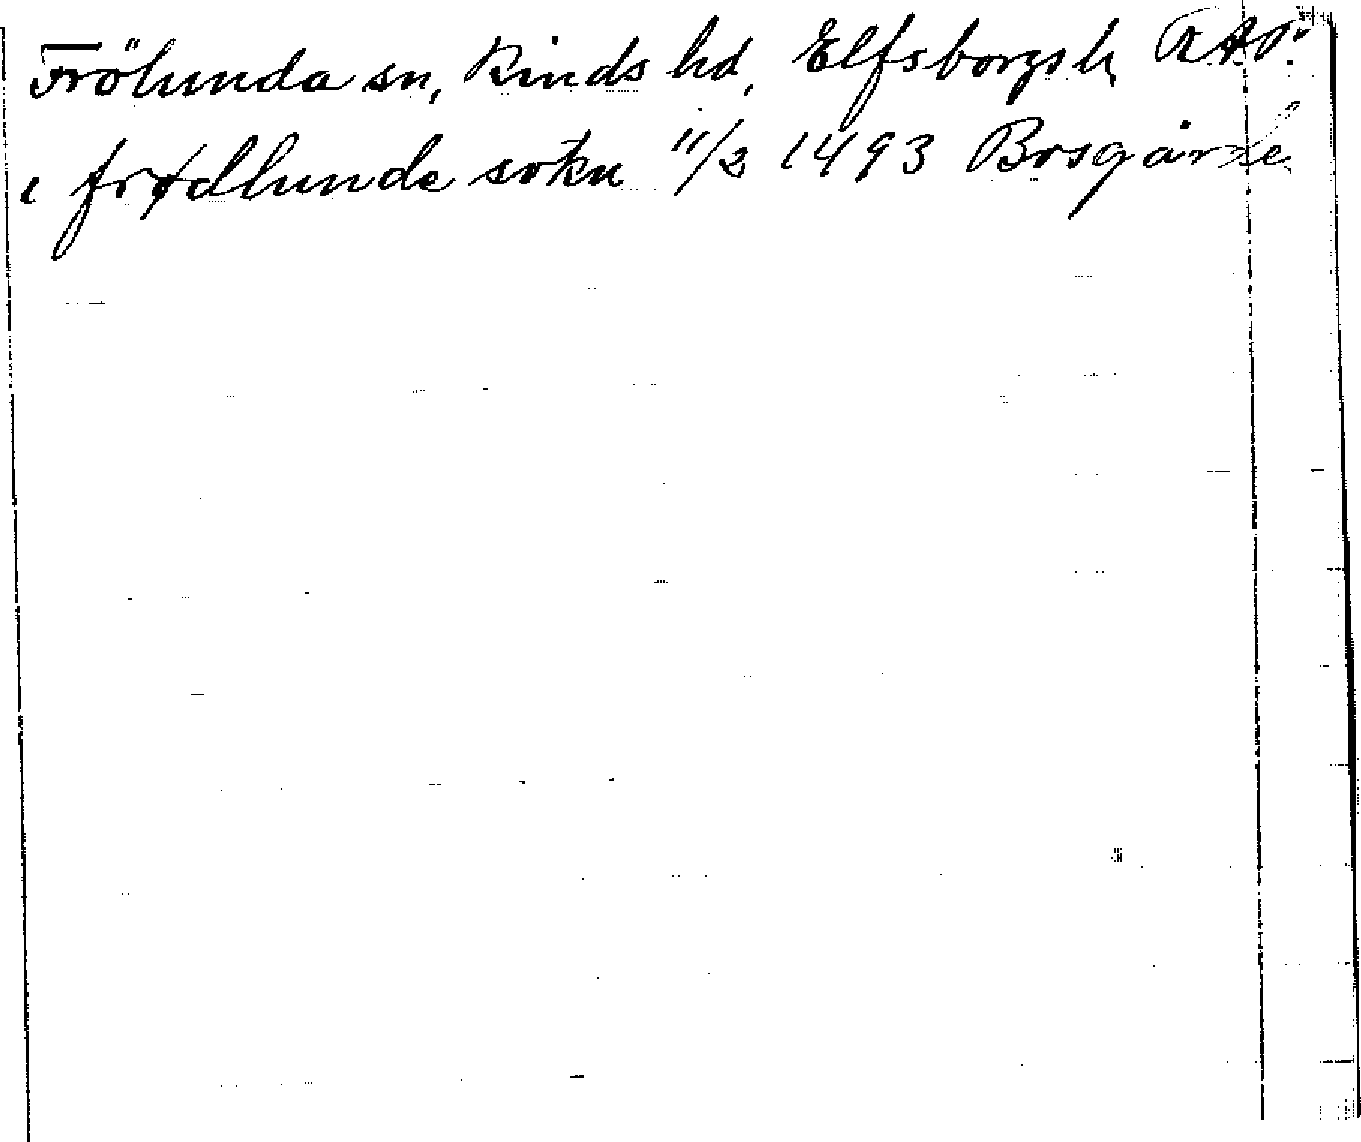 Frölunda sn, Kinds hd, Elfsborgs l. RAP.
i frødlunde sokn 11/2 1493 Bosgårde